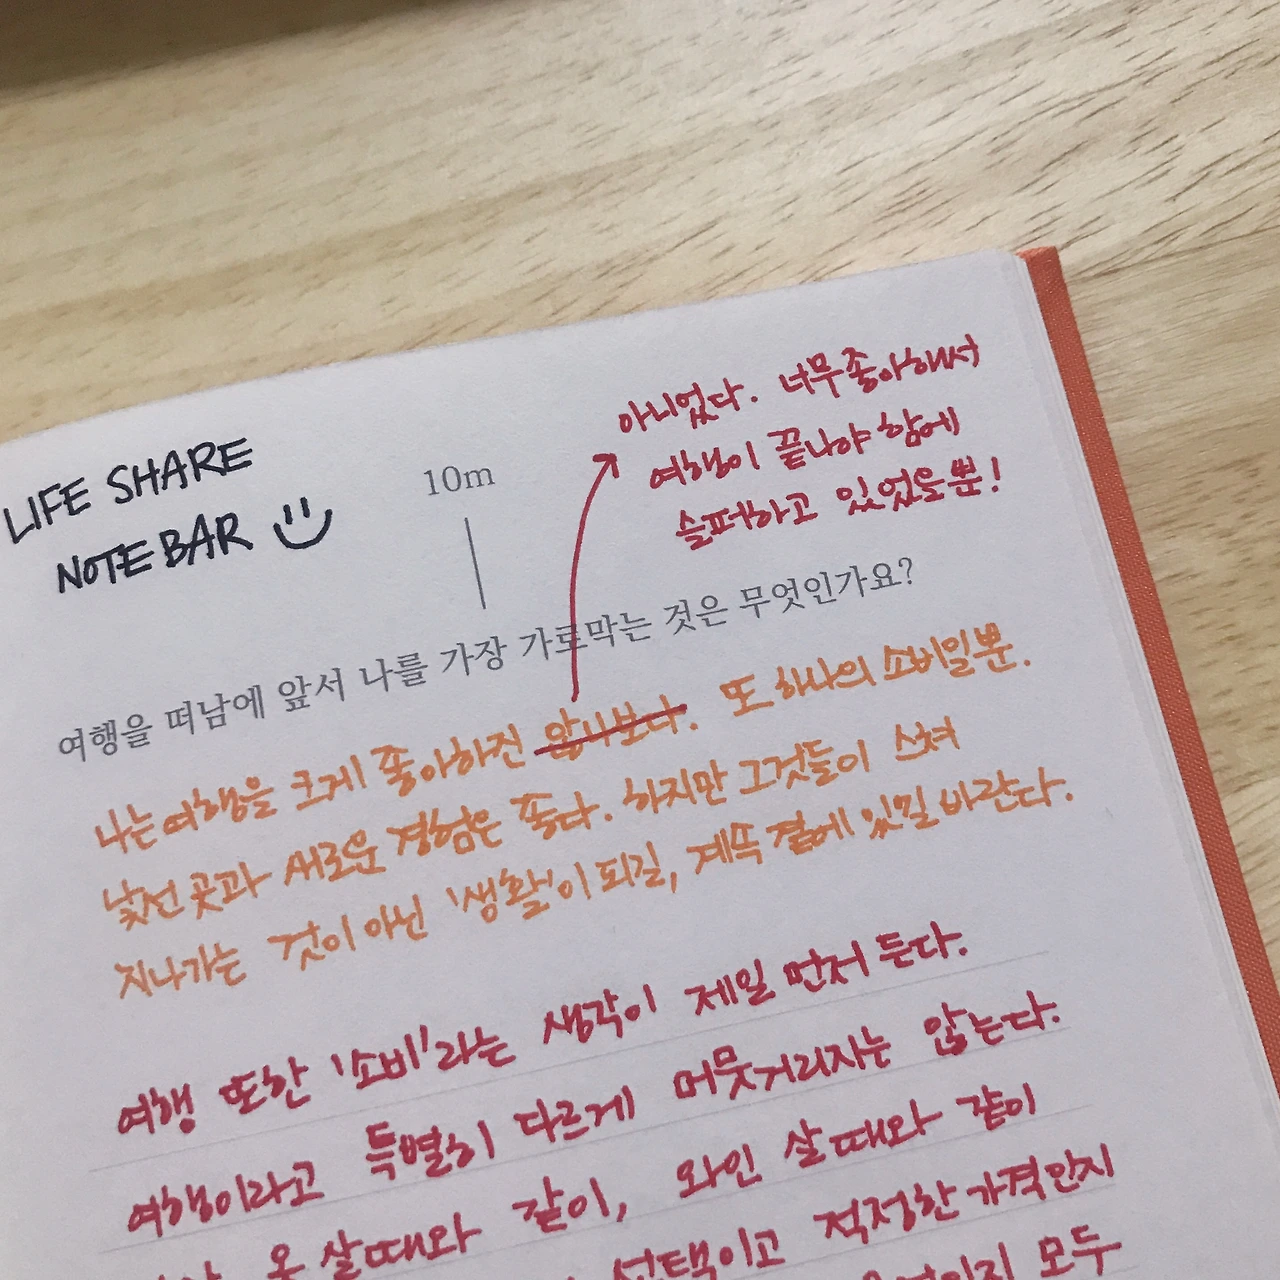 LIFE SHARE
NOTE BAR
10m
아니었다. 너무 좋아해서
여행이 끝나야 함에
슬퍼하고 있었을뿐!
여행을 떠남에 앞서 나를 가장 가로막는 것은 무엇인가요?
나는 여행을 크게 좋아하진 않나보다. 또 하나의 소비일뿐.
낯선 곳과 새로운 경험은 좋다. 하지만 그것들이 스쳐
지나가는 것이 아닌 '생활'이 되길, 계속 곁에 있길 바란다.
여행 또한 '소비'라는 생각이 제일 먼저 든다.
여행이라고 특별히 다르게 머뭇거리지는 않는다.
옷 살때와 같이, 와인 살때와 같이
선택이고 적정한 가격인지
모두